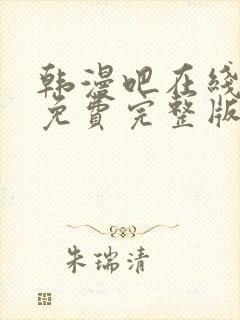 韩漫吧在线
免費完整版
朱瑞清